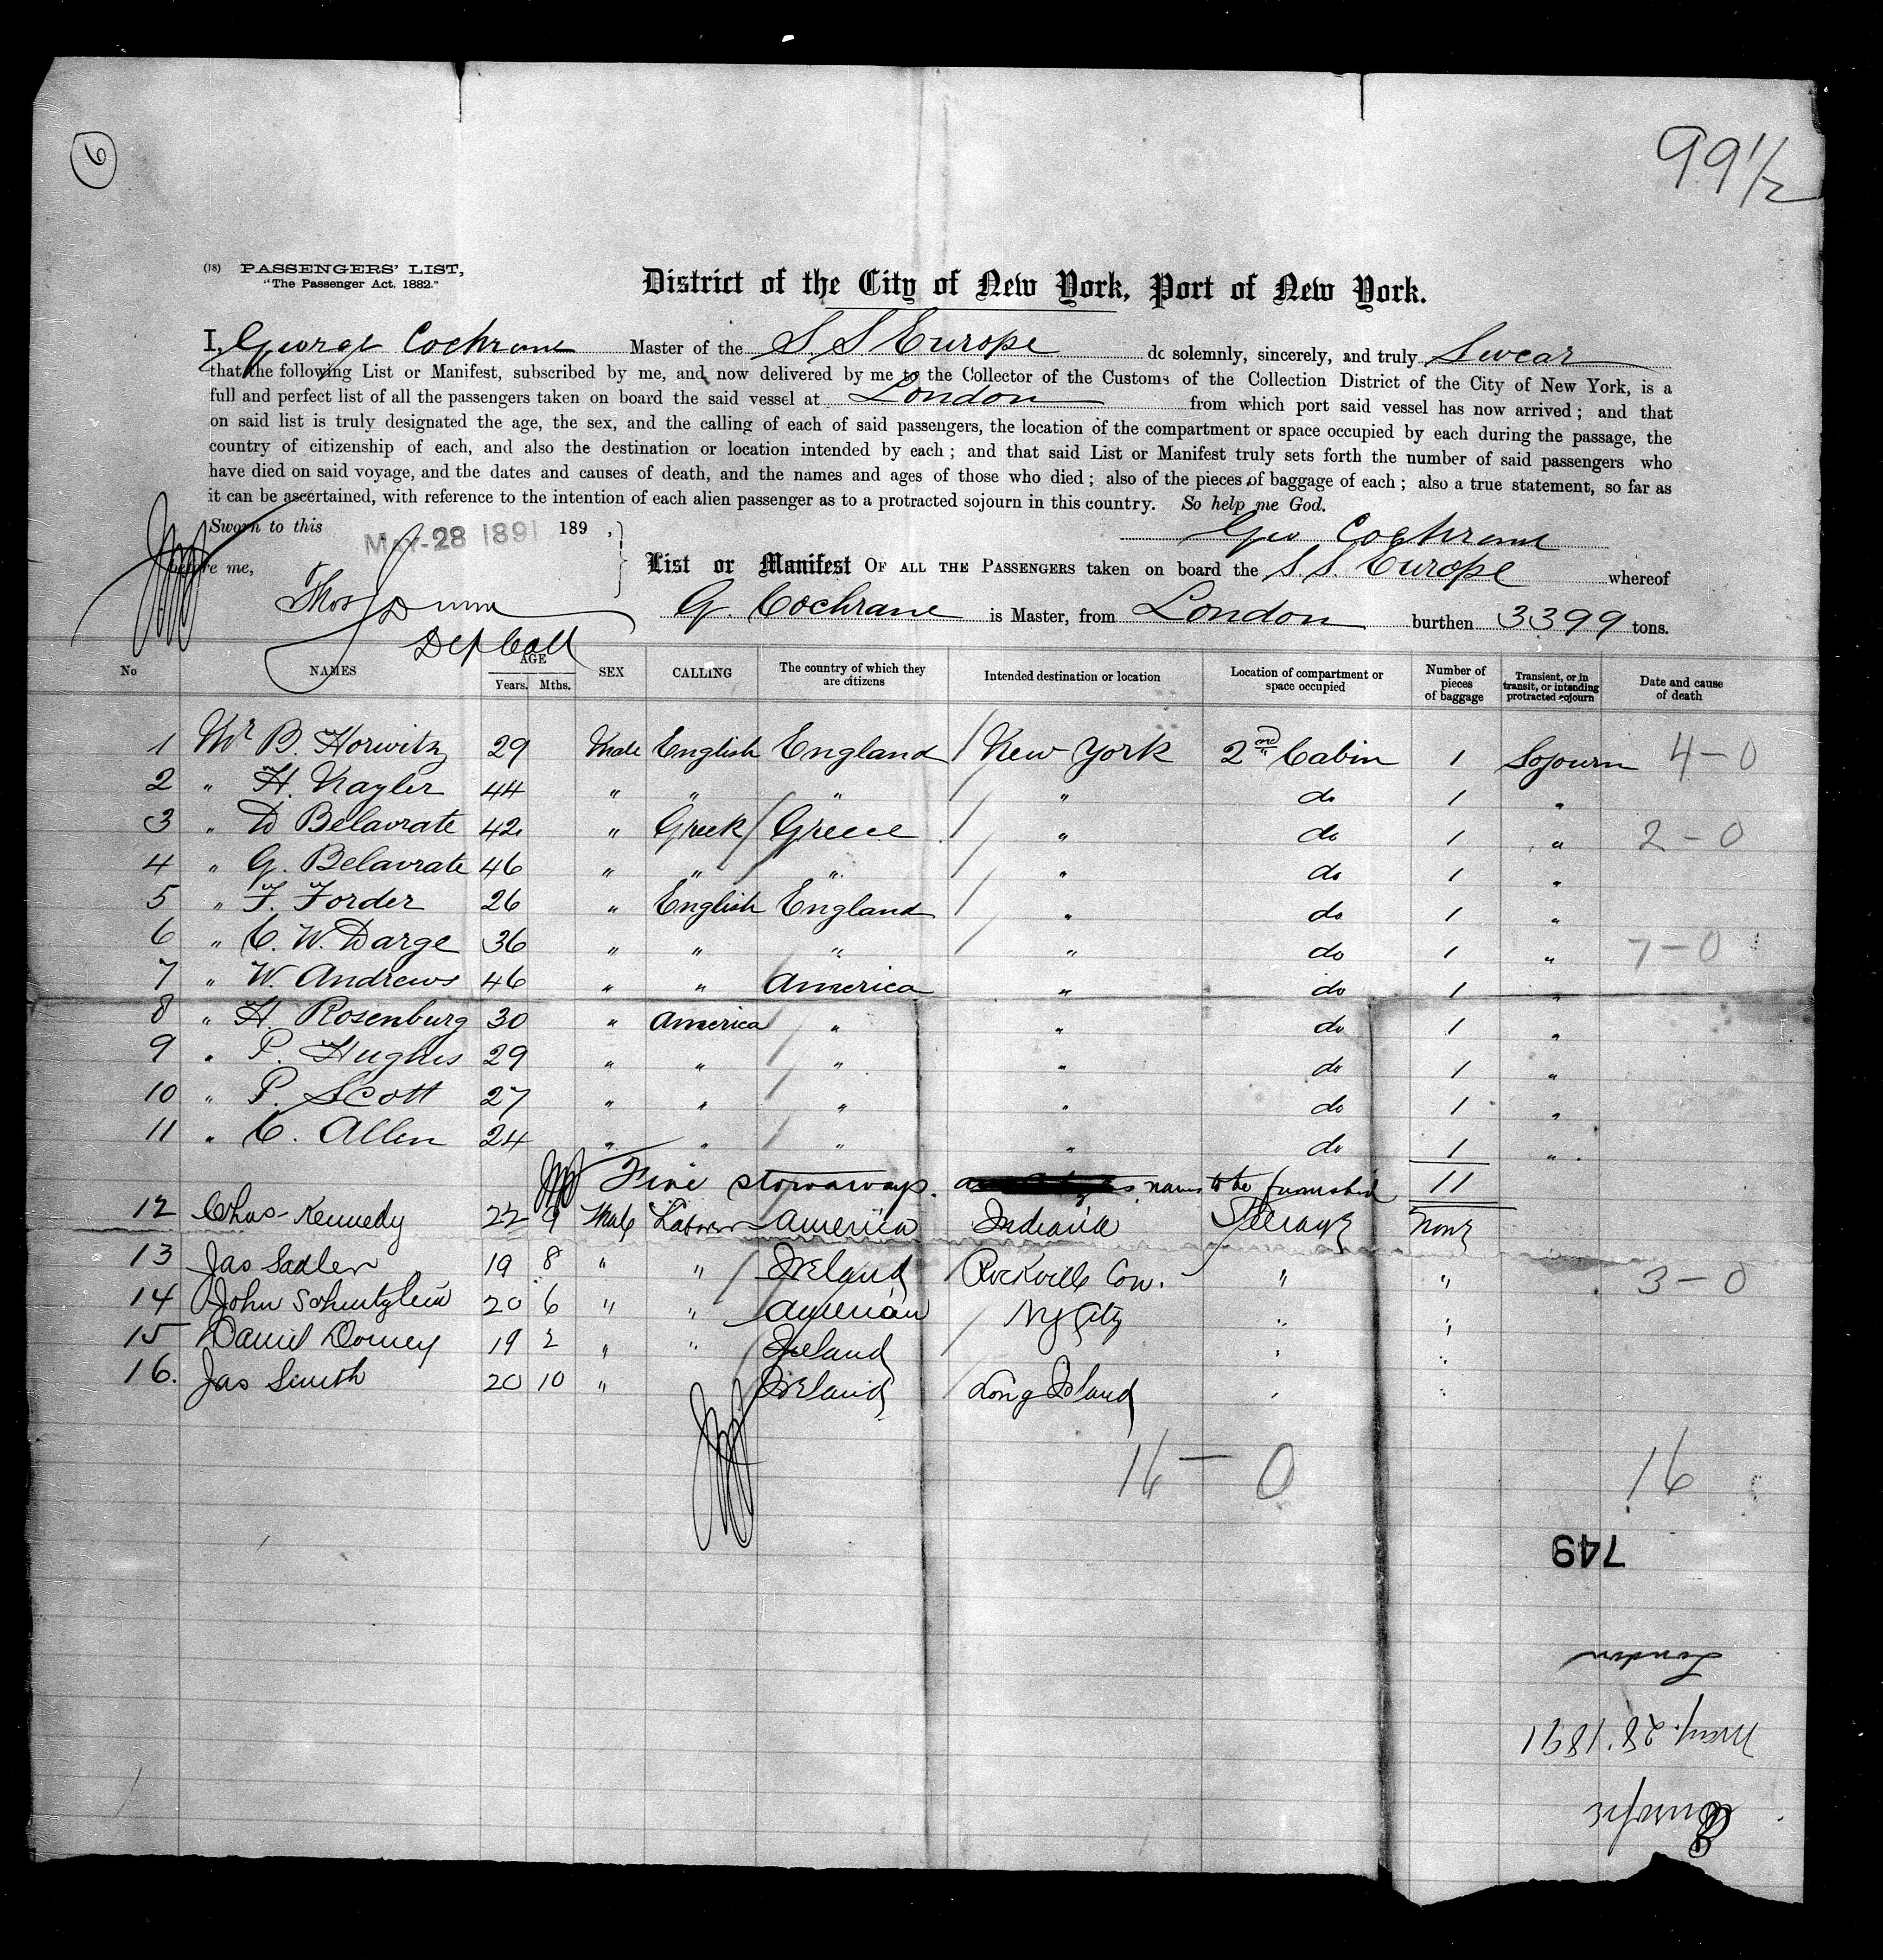 6
99 1/2
(18) PASSENGERS' LIST,
"The Passenger Act, 1882."
District of the City of New York, Port of New York.
I, George Cochrane Master of the S S Europe do solemnly, sincerely, and truly Swear
that the following List or Manifest, subscribed by me, and now delivered by me to the Collector of the Customs of the Collection District of the City of New York, is a
full and perfect list of all the passengers taken on board the said vessel at London from which port said vessel has now arrived; and that
on said list is truly designated the age, the sex, and the calling of each of said passengers, the location of the compartment or space occupied by each during the passage, the
country of citizenship of each, and also the destination or location intended by each; and that said List or Manifest truly sets forth the number of said passengers who
have died on said voyage, and the dates and causes of death, and the names and ages of those who died; also of the pieces of baggage of each; also a true statement, so far as
it can be ascertained, with reference to the intention of each alien passenger as to a protracted sojourn in this country. So help me God.
Sworn to this MAY 28 1891 189 ,
Geo Cochrane
before me,
List or Manifest OF ALL THE PASSENGERS taken on board the S.S. Europe whereof
Thos Dunn
G. Cochrane is Master, from London burthen 3399 tons.
Dep Coll
No NAMES AGE Years. Mths. SEX CALLING The country of which they are citizens Intended destination or location Location of compartment or space occupied Number of pieces of baggage Transient, or in transit, or intending protracted sojourn Date and cause of death
1 Mr B. Horwitz 29 Male English England New York 2nd Cabin 1 Sojourn 4-0
2 " H. Nayler 44 " " " " do 1 "
3 " D Belavrate 42 " Greek Greece " do 1 " 2-0
4 " G. Belavrate 46 " " " " do 1 "
5 " F. Forder 26 " English England " do 1 "
6 " C. W. Darge 36 " " " " do 1 " 7-0
7 " W. Andrews 46 " " America " do 1 "
8 " H. Rosenburg 30 " America " " do 1 "
9 " P. Hughes 29 " " " " do 1 "
10 " P. Scott 27 " " " " do 1 "
11 " C. Allen 24 " " " " do 1 "
Five stowaways. names to be furnished 11
12 Chas Kennedy 22 9 Male Laborer America Indiana Steerage None
13 Jas Sadler 19 8 " " Ireland Rockville Con. " " 3-0
14 John 20 6 " " American NY City " "
15 Daniel 19 2 " " Ireland " "
16. Jas Smith 20 10 " Ireland Long Island " "
16 - 0 16
749
London
May 28 1891
Europe